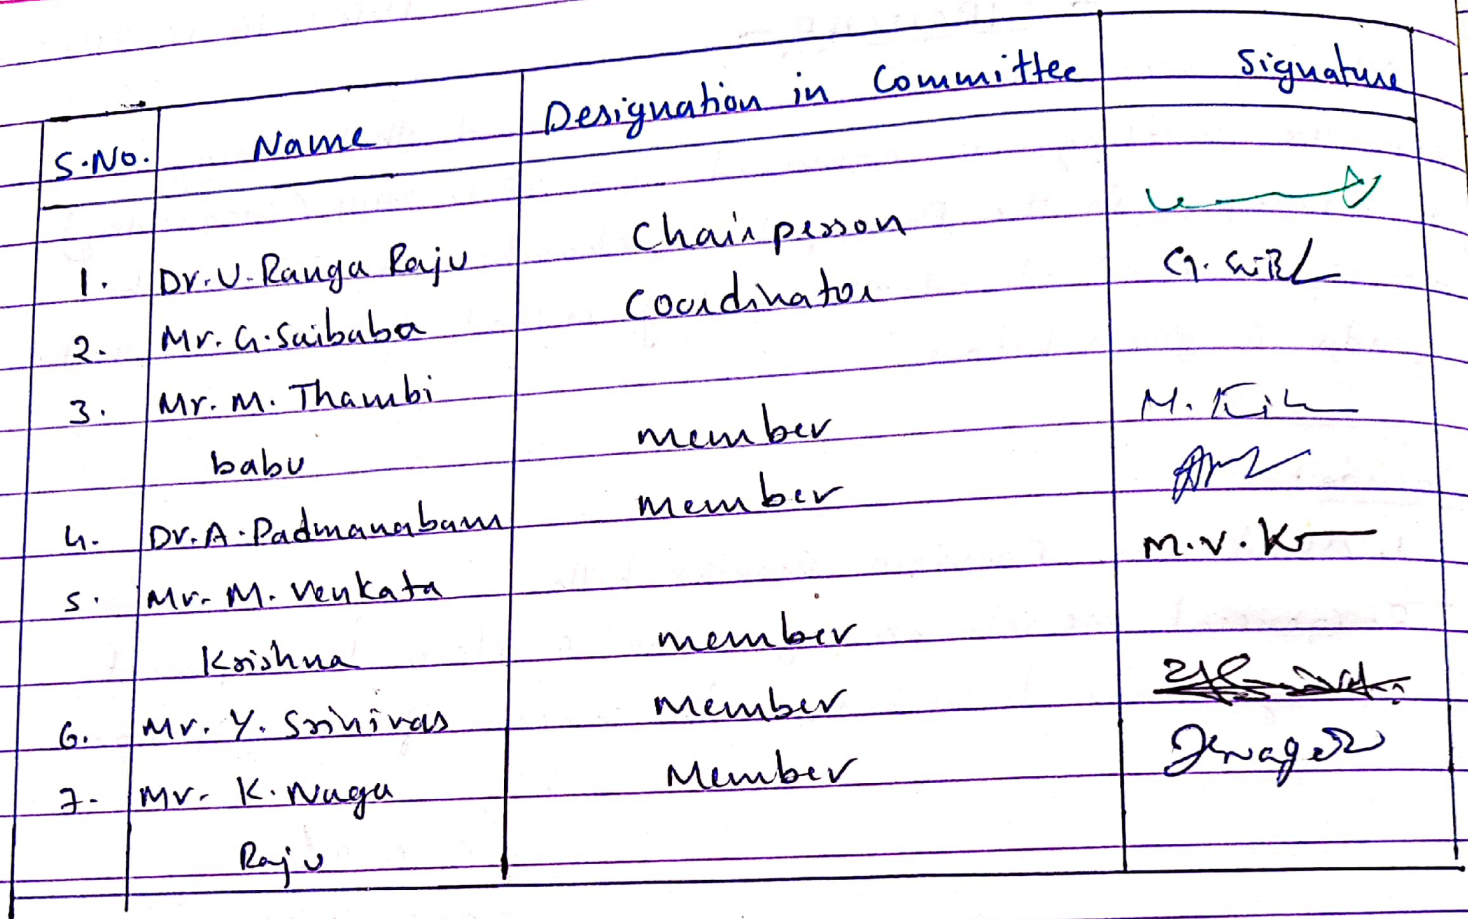 S.No. Name Designation in Committee Signature
1. Dr. U. Ranga Raju Chairperson
2. Mr. G. Saibaba Coordinator
3. Mr. M. Thambi
babu member
4. Dr. A. Padmanabam member
5. Mr. M. Venkata M.V.K
Krishna member
6. Mr. Y. Srinivas member
7. Mr. K. Naga Member
Raju